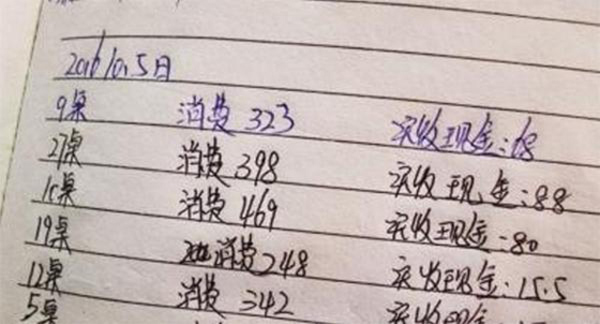 2016 10.5日
9桌 消费 323 实收现金:68
27桌 消费 398 实收现金:88
消费 469 实收现金:80
19桌 消费 248 实收现金:15.5
12桌 消费 342 实收现金
5桌